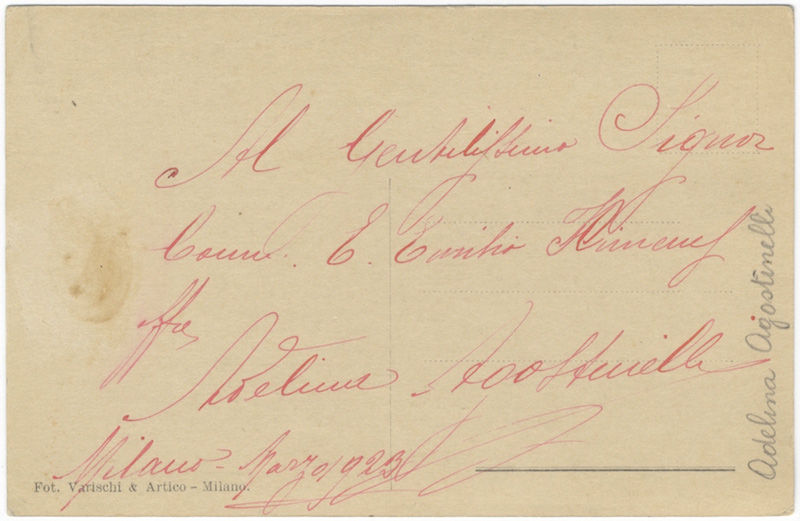 Al Gentilissimo Signor
Comm. E. Emilio Ximenes
offre
Adelina Agostinelli
Milano - Marzo 1923
Fot. Varischi & Artico - Milano.
Adelina Agostinelli